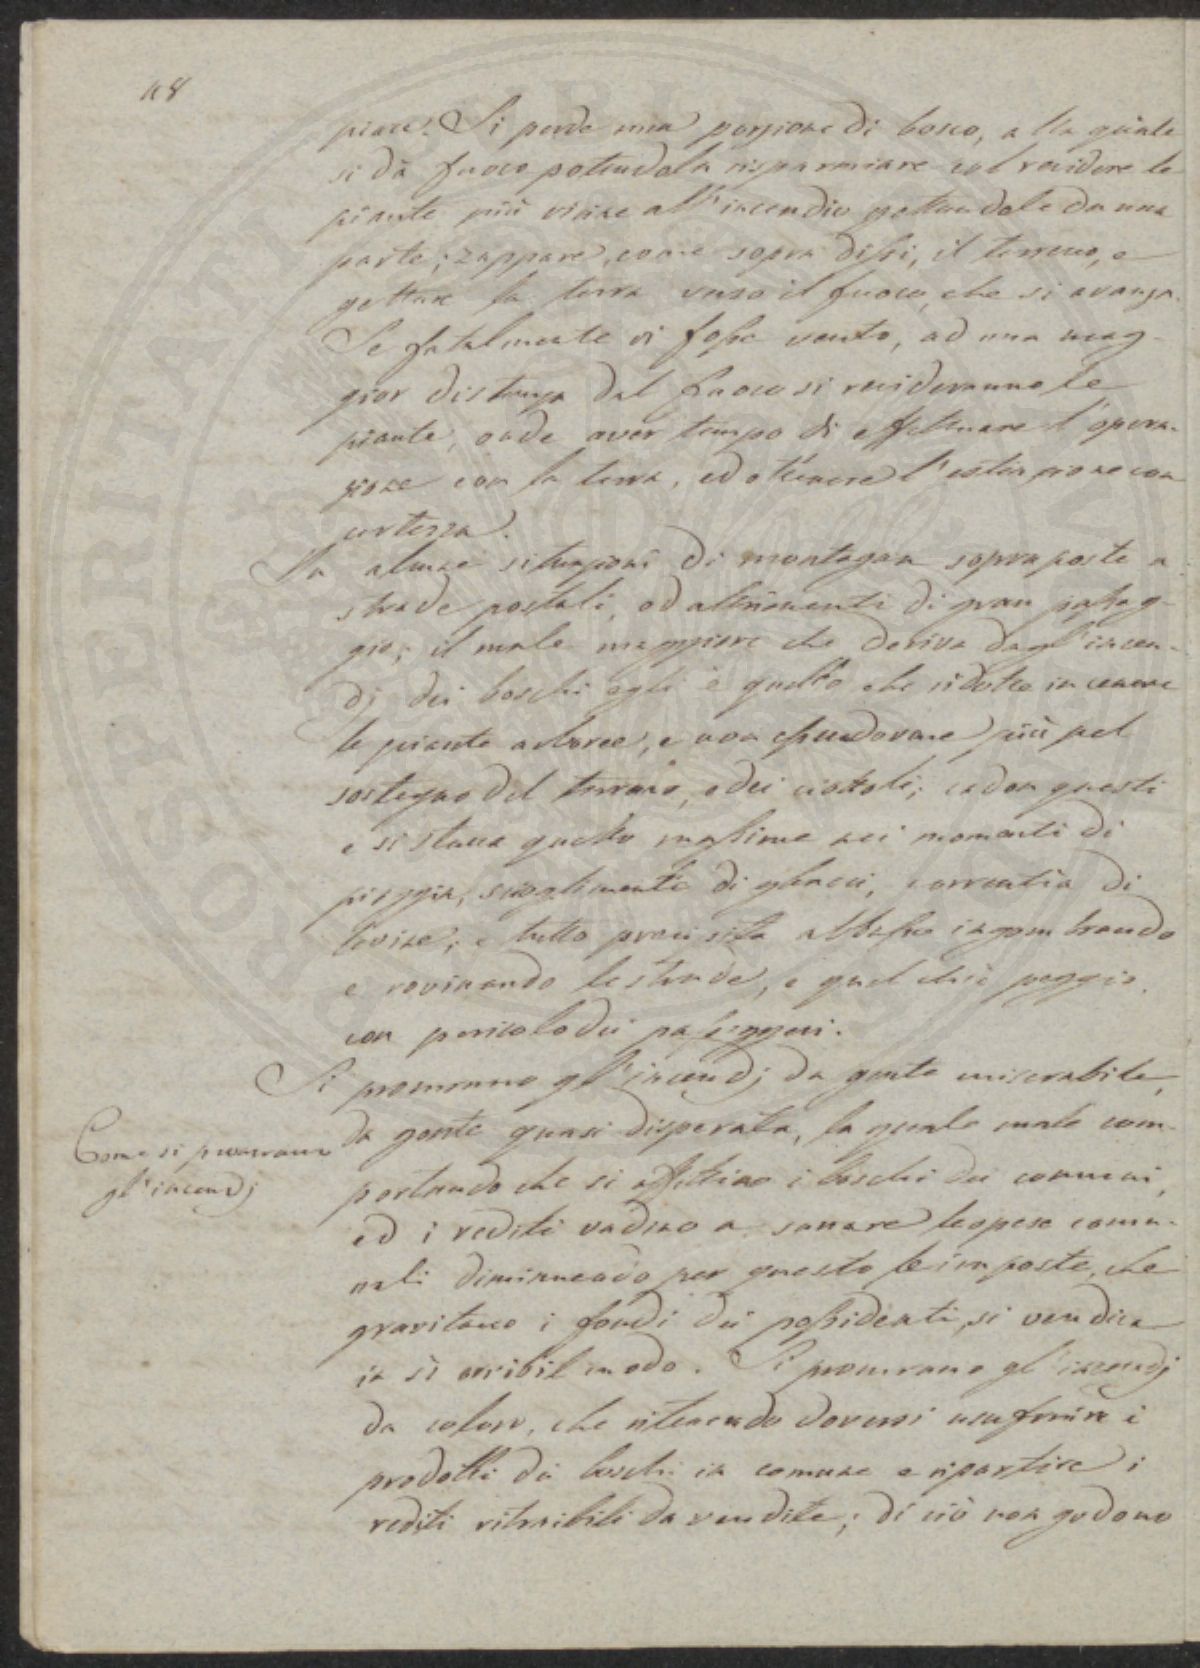 118
piace. Si perde una porzione di bosco, alla quale
si dà fuoco potendola risparmiare col recidere le
piante più vicine all'incendio gettandole da una
parte; zappare, come sopra dissi, il terreno, e
gettare la terra verso il fuoco, che si avanza.
Se fatalmente vi fosse vento, ad una mag-
gior distanza dal fuoco si recideranno le
piante, onde aver tempo di effettuare l'opera-
zione con la terra, ed ottenere l'estinzione con
certezza.
In alcune situazioni di montagna soprapposte a
strade postali, od altrimenti di gran passag-
gio; il male maggiore che deriva dagl'incen-
dj dei boschi egli è quello che ridotte in cenere
le piante arboree, e non essendovene più pel
sostegno del terreno, e dei ciottoli; cadon questi
e si stacca quello massime nei momenti di
pioggia, scioglimento di ghiacci, correntia di
levine; e tutto precipita abbasso ingombrando
e rovinando le strade, e quel ch'è peggio,
con pericolo dei passeggeri.
Si procurano gl'incendj da gente miserabile,
Come si procurano
gl'incendj
da gente quasi disperata, la quale male com-
portando che si affittino i boschi dei comuni,
ed i redditi vadino a sanare le spese comu-
nali diminuendo per questo le imposte, che
gravitano i fondi dei possidenti, si vendica
in sì orribil modo. Si procurano gl'incendj
da coloro, che ritenendo doversi usufruire i
prodotti dei boschi in comune e ripartire i
redditi ritraibili da vendite; di ciò non godono
PROSPERITATI PUBLICAE